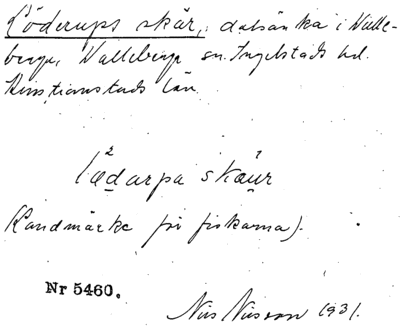 Löderups skär, dalsänka i Valle-
berga, Valleberga sn. Ingelstads hd.
Kristianstads län.
lødarpa skæur
(Landmärke för fiskarna).
Nr 5460.
Nils Nilsson 1931.